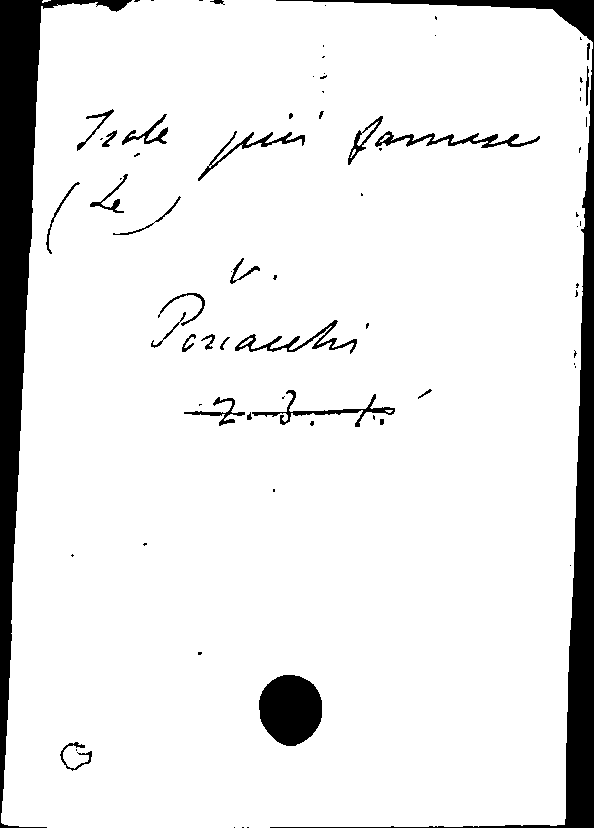 Isole più famose
(Le)
v.
Porcacchi
2.3.1.